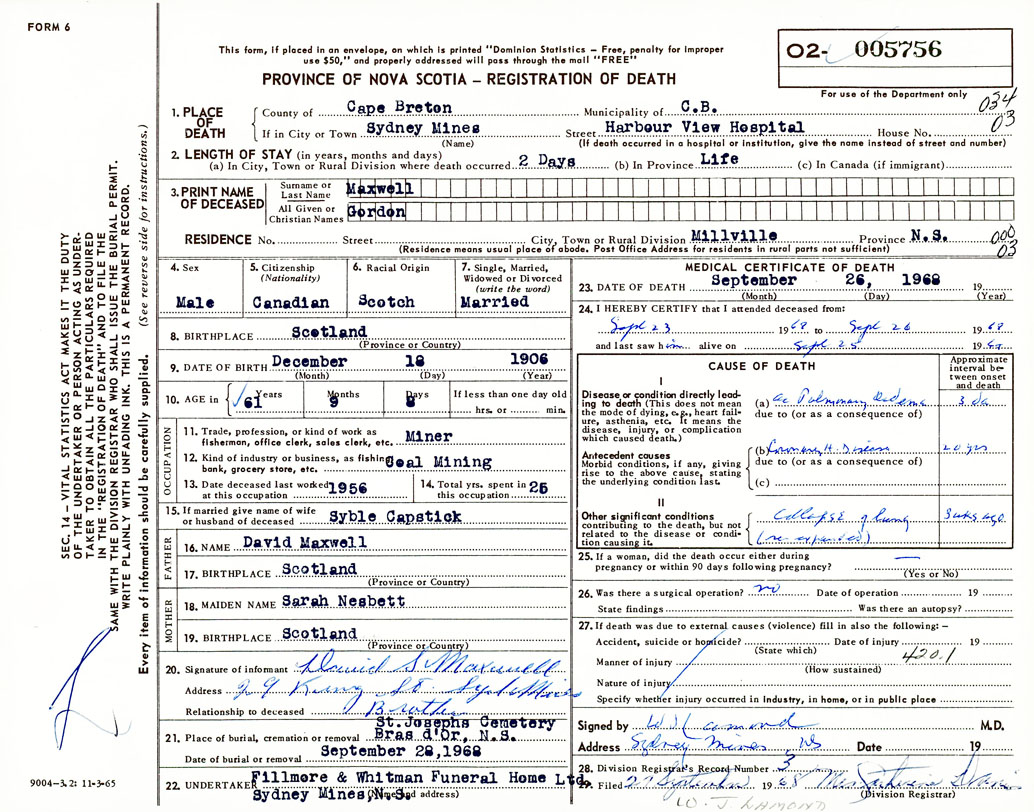 FORM 6
This form, if placed in an envelope, on which is printed "Dominion Statistics – Free, penalty for improper
use $50," and properly addressed will pass through the mail "FREE"
PROVINCE OF NOVA SCOTIA – REGISTRATION OF DEATH
02- 005756
For use of the Department only
034
03
1. PLACE OF DEATH
County of Cape Breton Municipality of C.B.
If in City or Town Sydney Mines Street Harbour View Hospital House No.
(Name) (If death occurred in a hospital or institution, give the name instead of street and number)
2. LENGTH OF STAY (in years, months and days)
(a) In City, Town or Rural Division where death occurred 2 Days (b) In Province Life (c) In Canada (if immigrant)
3. PRINT NAME OF DECEASED
Surname or Last Name Maxwell
All Given or Christian Names Gordon
RESIDENCE No. Street City, Town or Rural Division Millville Province N.S.
(Residence means usual place of abode. Post Office Address for residents in rural parts not sufficient)
000
03
4. Sex
Male
5. Citizenship
(Nationality)
Canadian
6. Racial Origin
Scotch
7. Single, Married,
Widowed or Divorced
(write the word)
Married
8. BIRTHPLACE Scotland
(Province or Country)
9. DATE OF BIRTH December 18 1906
(Month) (Day) (Year)
10. AGE in Years 61 Months 9 Days 8 If less than one day old
hrs. or min.
OCCUPATION
11. Trade, profession, or kind of work as
fisherman, office clerk, sales clerk, etc. Miner
12. Kind of industry or business, as fishing
bank, grocery store, etc. Coal Mining
13. Date deceased last worked
at this occupation 1956
14. Total yrs. spent in
this occupation 25
15. If married give name of wife
or husband of deceased Syble Capstick
FATHER
16. NAME David Maxwell
17. BIRTHPLACE Scotland
(Province or Country)
MOTHER
18. MAIDEN NAME Sarah Nesbett
19. BIRTHPLACE Scotland
(Province or Country)
20. Signature of informant David S. Maxwell
Address 29 King St. Syd. Mines
Relationship to deceased Brother
21. Place of burial, cremation or removal St.Josephs Cemetery
Bras d'Or, N.S.
Date of burial or removal September 28,1968
22. UNDERTAKER Fillmore & Whitman Funeral Home Ltd.
Sydney Mines,N.S.
(Name and address)
MEDICAL CERTIFICATE OF DEATH
23. DATE OF DEATH September 26, 1968 19
(Month) (Day) (Year)
24. I HEREBY CERTIFY that I attended deceased from:
Sept 23 1968 to Sept 26 1968
and last saw him alive on Sept 25 19
CAUSE OF DEATH
Approximate
interval between onset
and death
I
Disease or condition directly leading to death (This does not mean
the mode of dying, e.g., heart failure, asthenia, etc. It means the
disease, injury, or complication
which caused death.)
(a) ac Pulmonary Oedema 3 da
due to (or as a consequence of)
Antecedent causes
Morbid conditions, if any, giving
rise to the above cause, stating
the underlying condition last.
(b) Coronary H. Disease 20 yrs
due to (or as a consequence of)
(c)
II
Other significant conditions
contributing to the death, but not
related to the disease or condition causing it.
Collapse of lung 3 wks ago
(re-expanded)
25. If a woman, did the death occur either during
pregnancy or within 90 days following pregnancy? —
(Yes or No)
26. Was there a surgical operation? no Date of operation 19
State findings Was there an autopsy?
27. If death was due to external causes (violence) fill in also the following: –
Accident, suicide or homicide? Date of injury 19
(State which)
420.1
Manner of injury
(How sustained)
Nature of injury
Specify whether injury occurred in Industry, in home, or in public place
Signed by W J Lamond M.D.
Address Sydney Mines NS Date 19
28. Division Registrar's Record Number 3
29. Filed 27 September 1968
(Division Registrar)
W. J. LAMOND
SEC. 14 – VITAL STATISTICS ACT MAKES IT THE DUTY
OF THE UNDERTAKER OR PERSON ACTING AS UNDERTAKER TO OBTAIN ALL THE PARTICULARS REQUIRED
IN THE "REGISTRATION OF DEATH" AND TO FILE THE
SAME WITH THE DIVISION REGISTRAR WHO SHALL ISSUE THE BURIAL PERMIT.
WRITE PLAINLY WITH UNFADING INK. THIS IS A PERMANENT RECORD.
Every item of information should be carefully supplied. (See reverse side for instructions.)
9004-3.2: 11-3-65